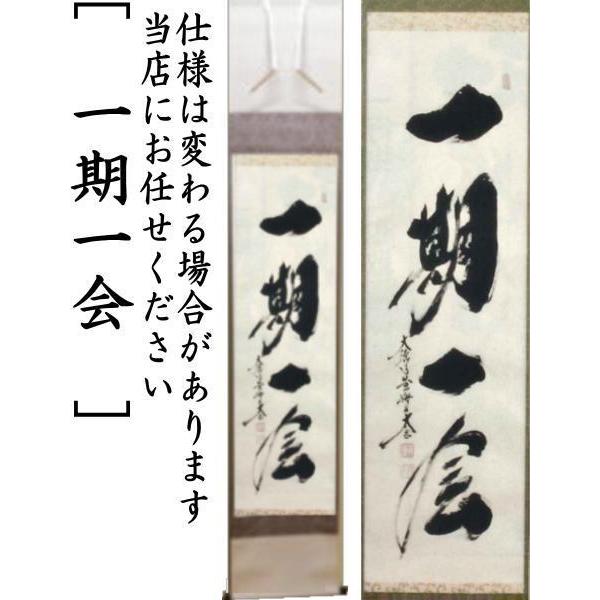 仕様は変わる場合があります
当店にお任せください
[一期一会]
一期一会
一期一会